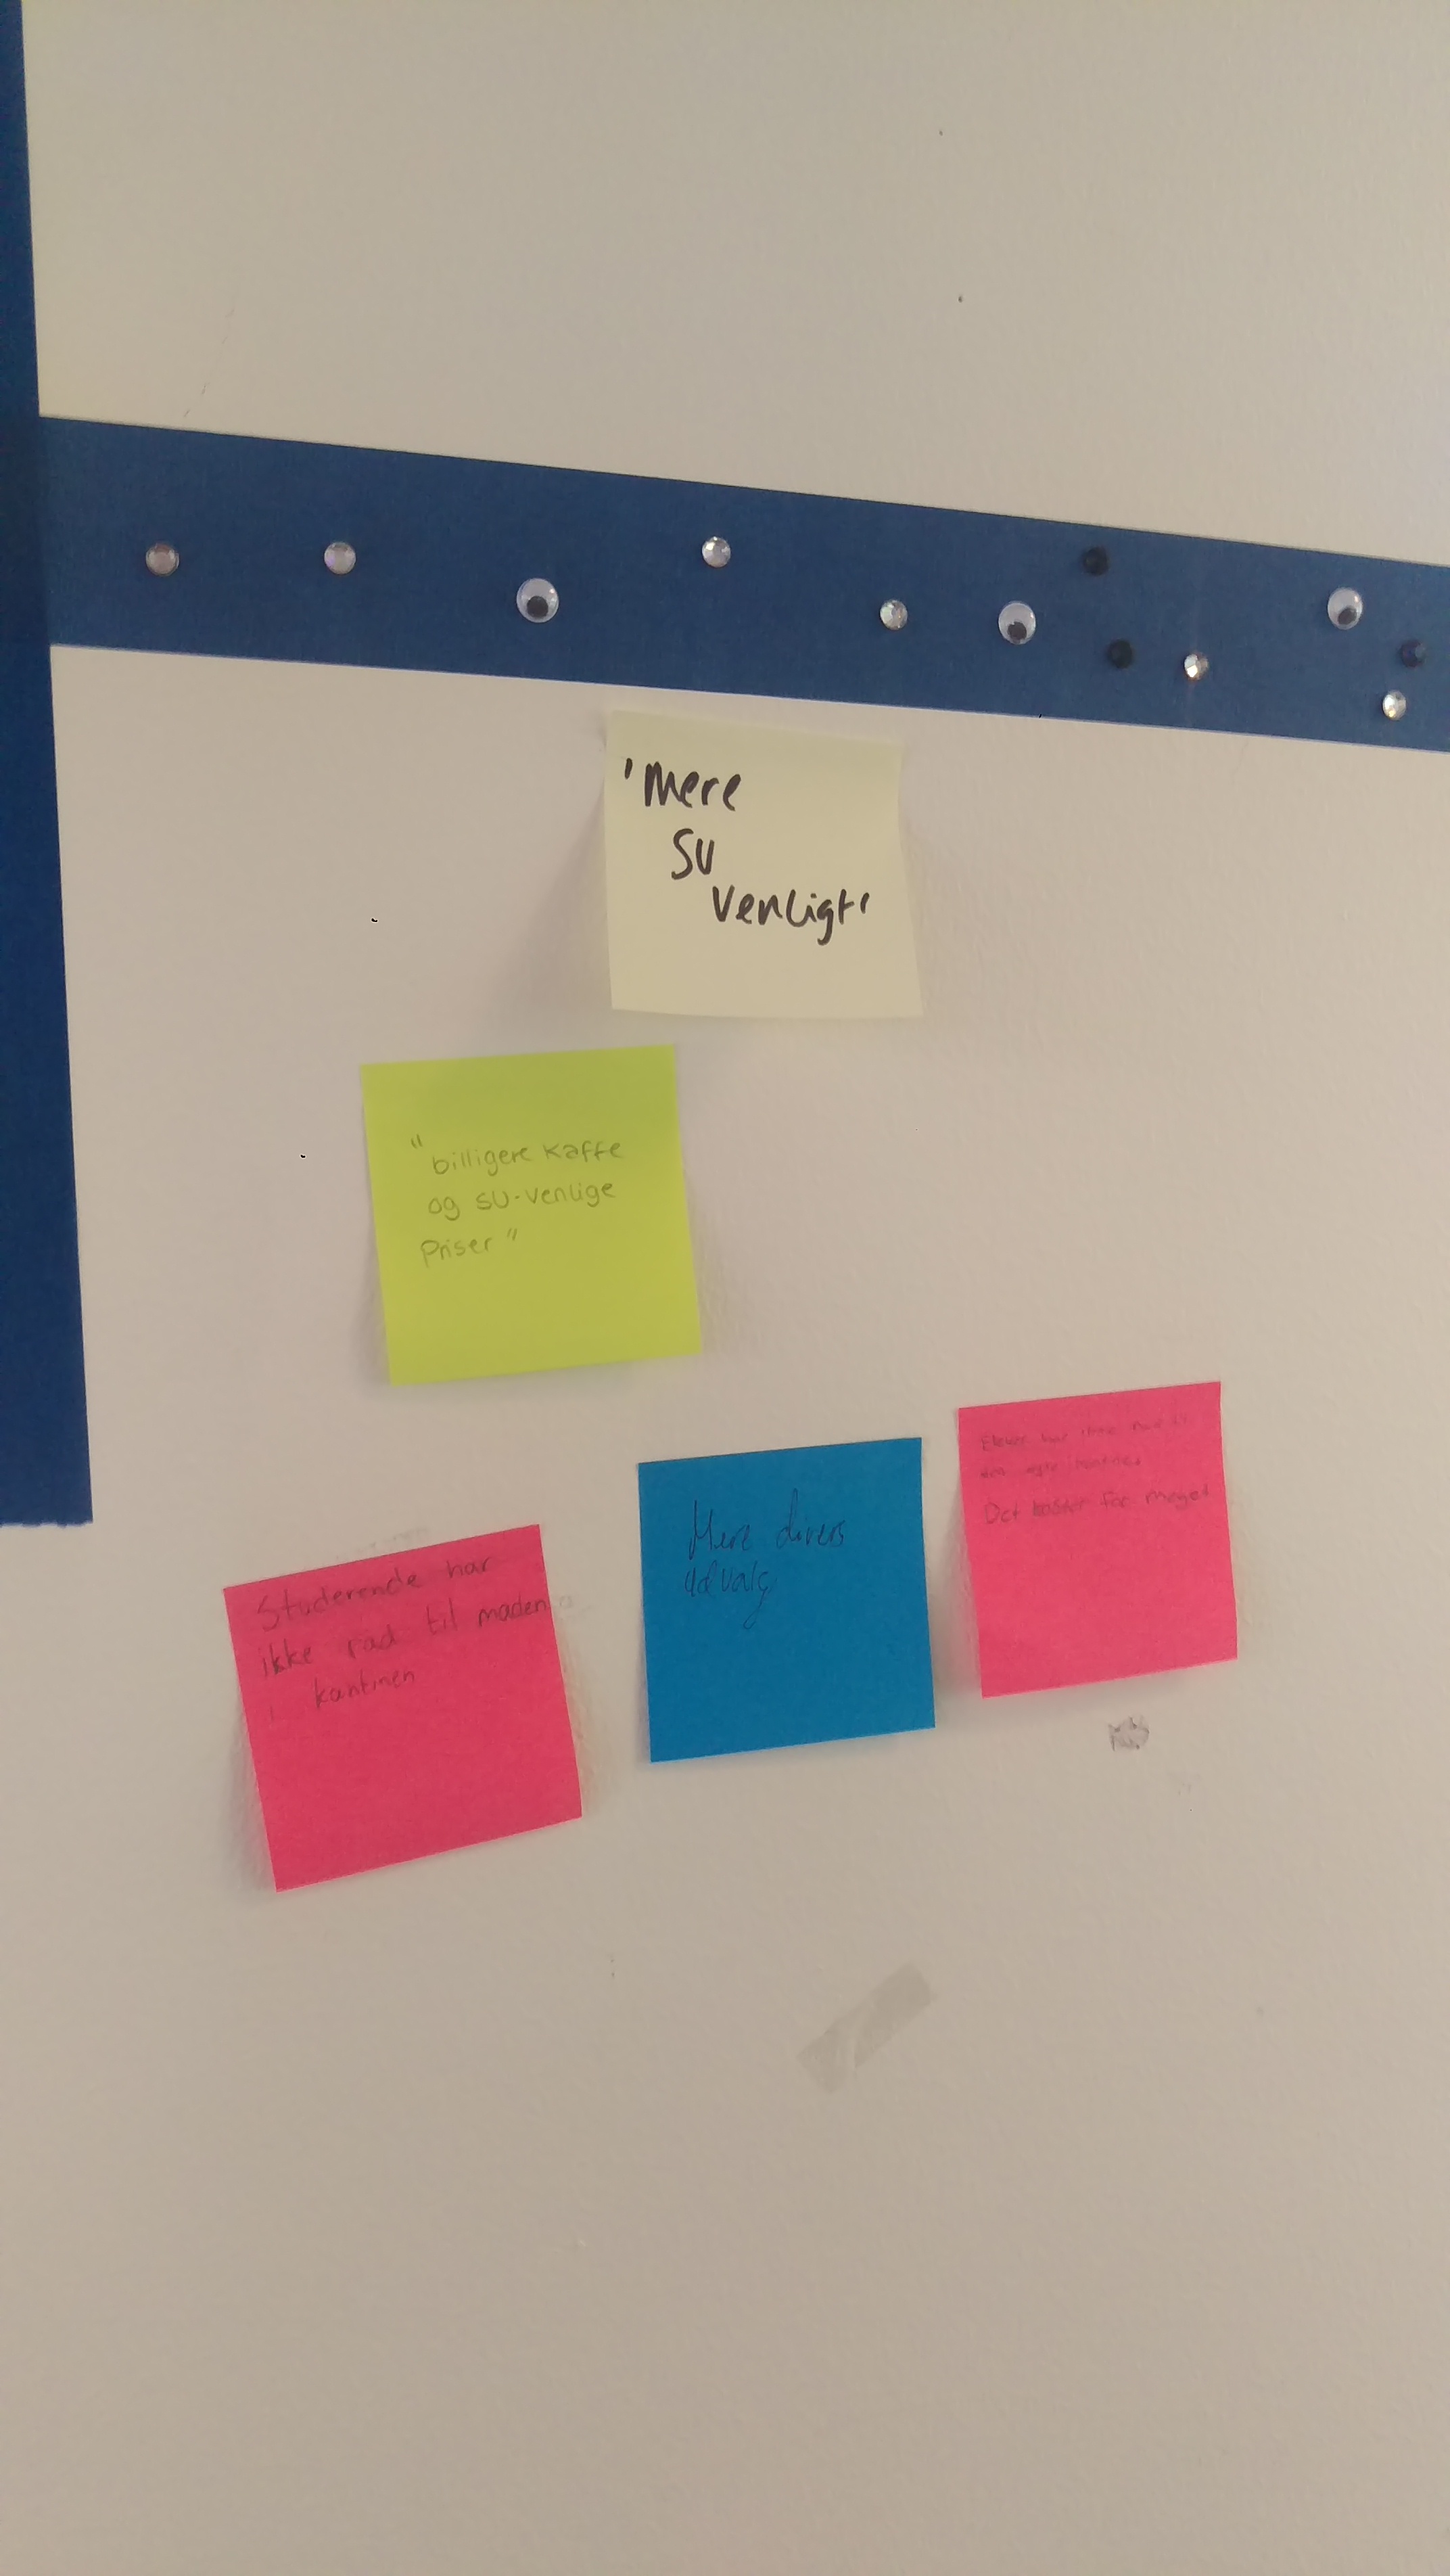 'Mere
SU
venligt'
"billigere kaffe
og SU-venlige
Priser"
Studerende har
ikke rad til maden
i kantinen
Mere divers
udvalg
Elever har ikke råd til
Det koster for meget